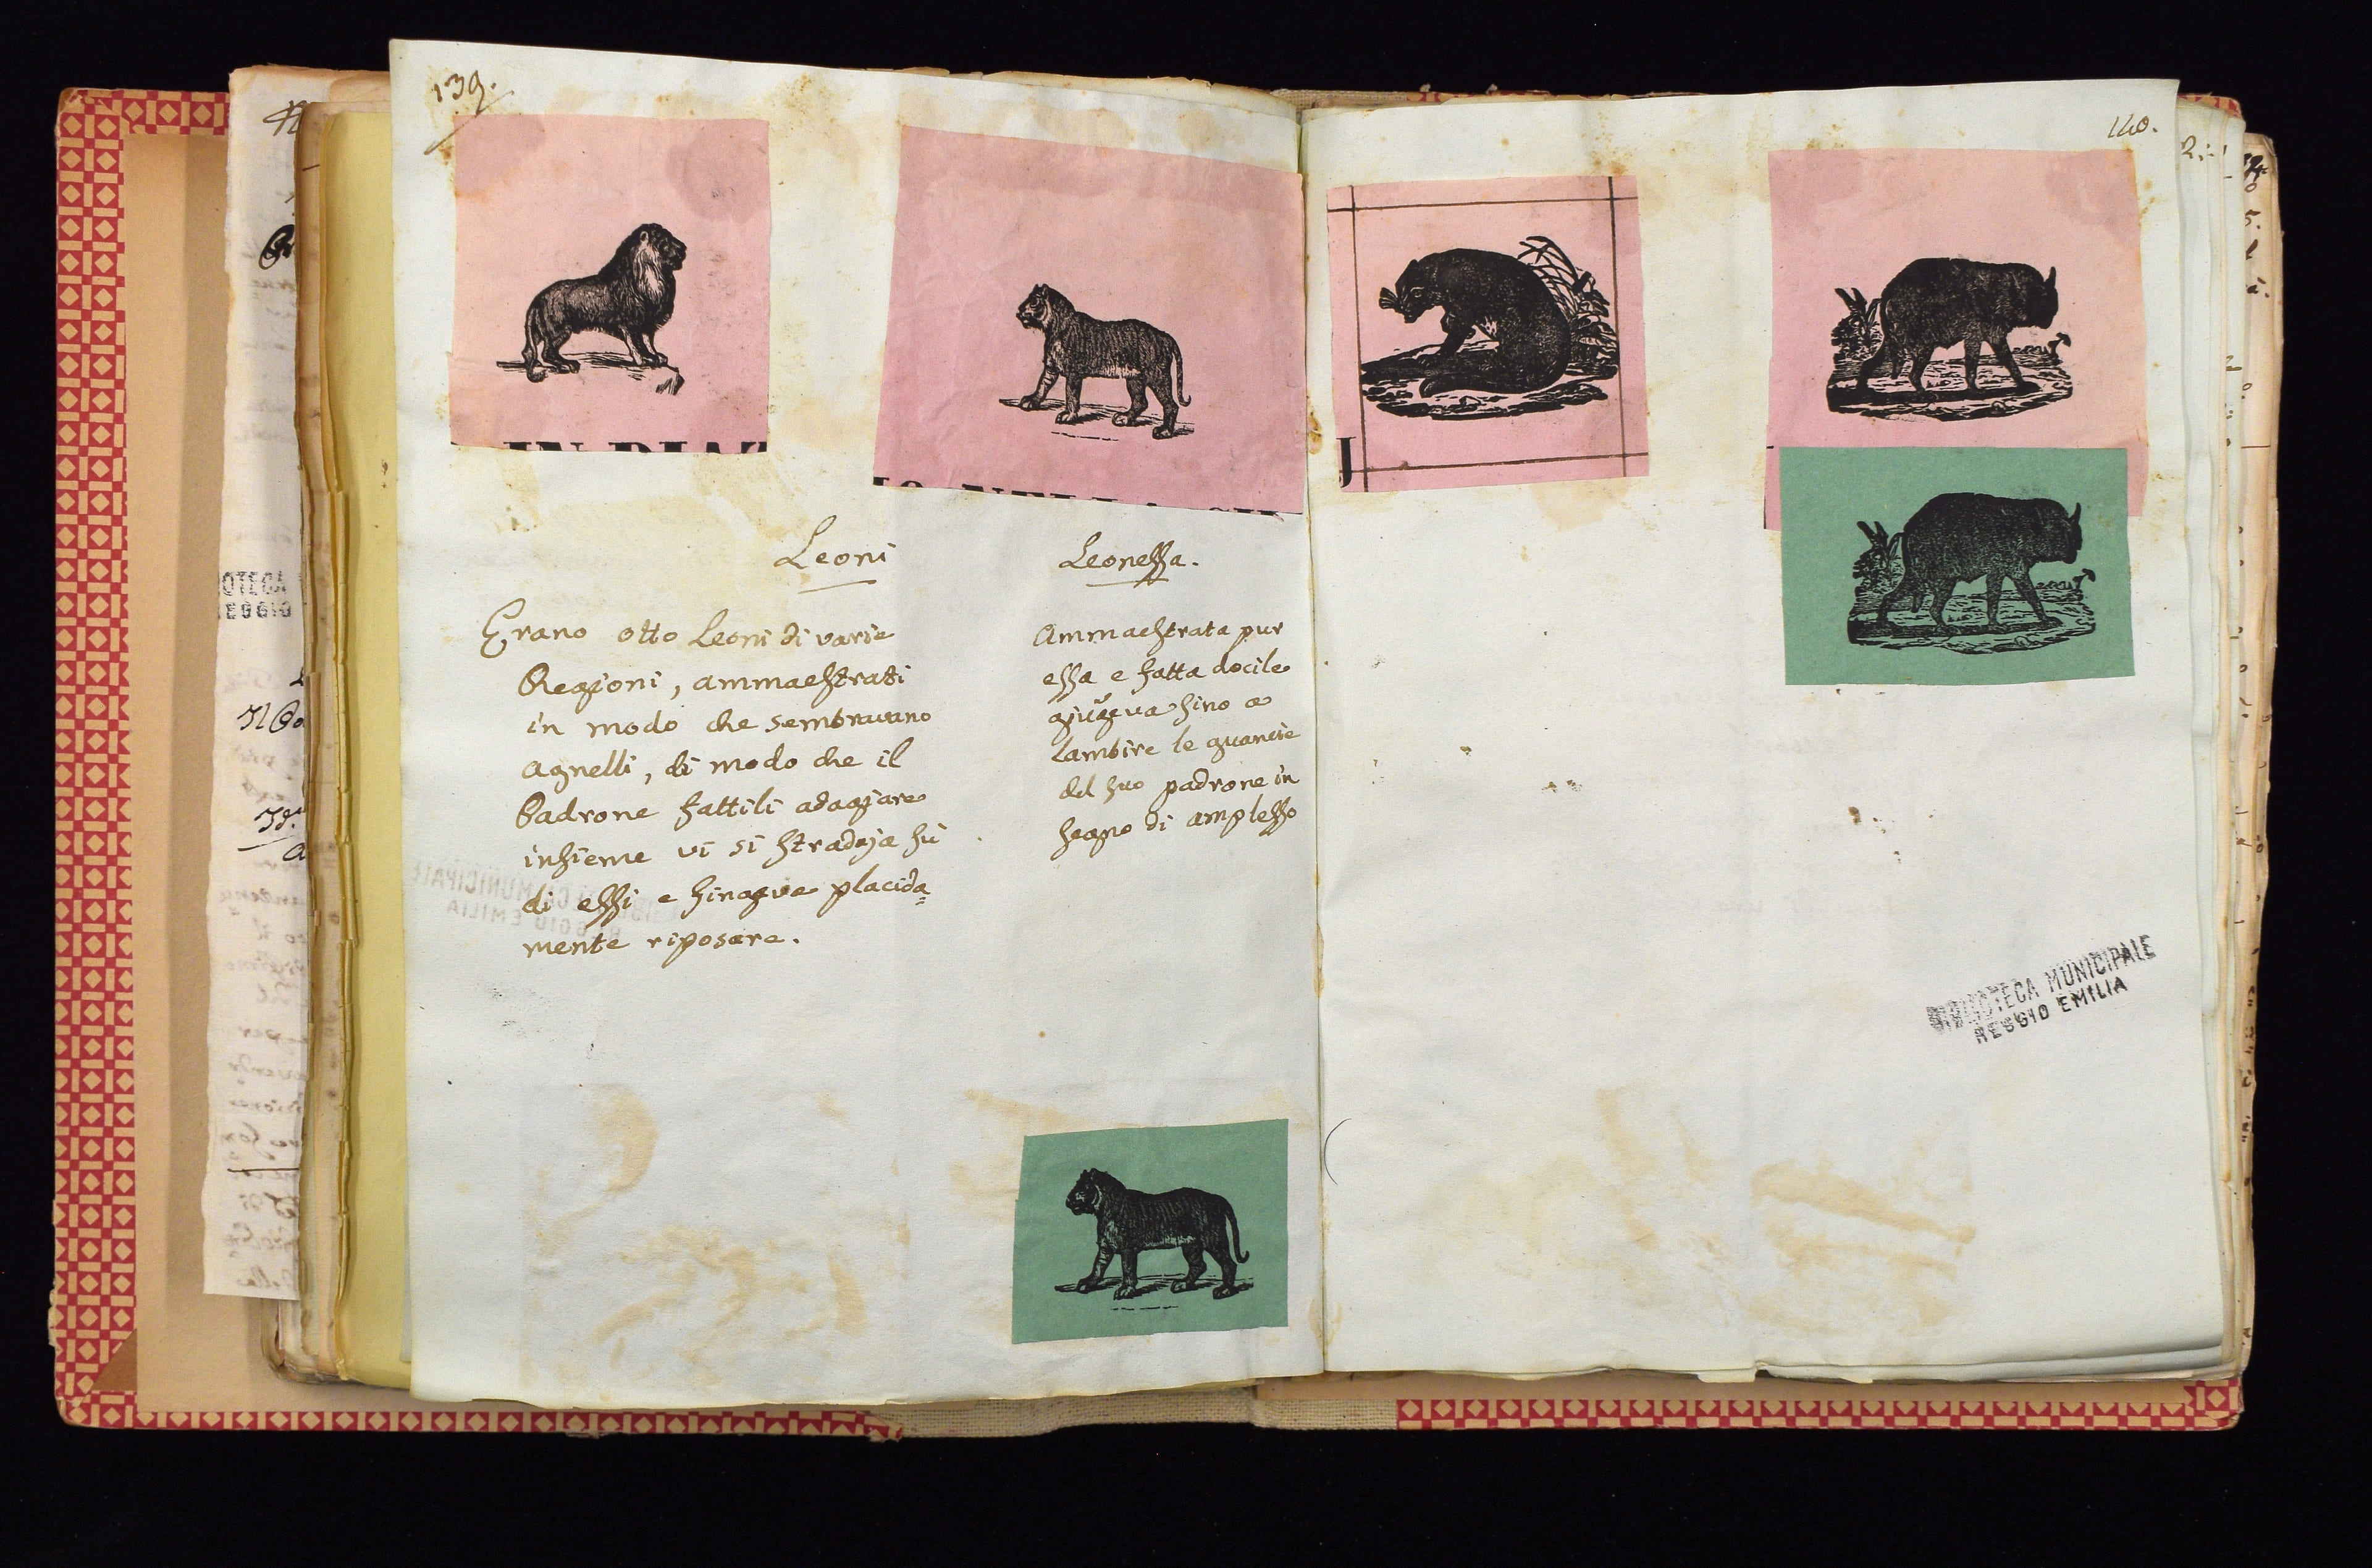 139.
Leoni
Erano otto Leoni di varie
Regioni, ammaestrati
in modo che sembravano
agnelli, di modo che il
Padrone fattili adagiare
insieme vi si stradaja sù
di essi e fingeva placida=
mente riposare.
Leonessa.
Ammaestrata pur
essa e fatta docile
giugeva sino a
lambire le guancie
del suo padrone in
segno di amplesso
140.
BIBLIOTECA MUNICIPALE
REGGIO EMILIA
OTECA
EGGIO